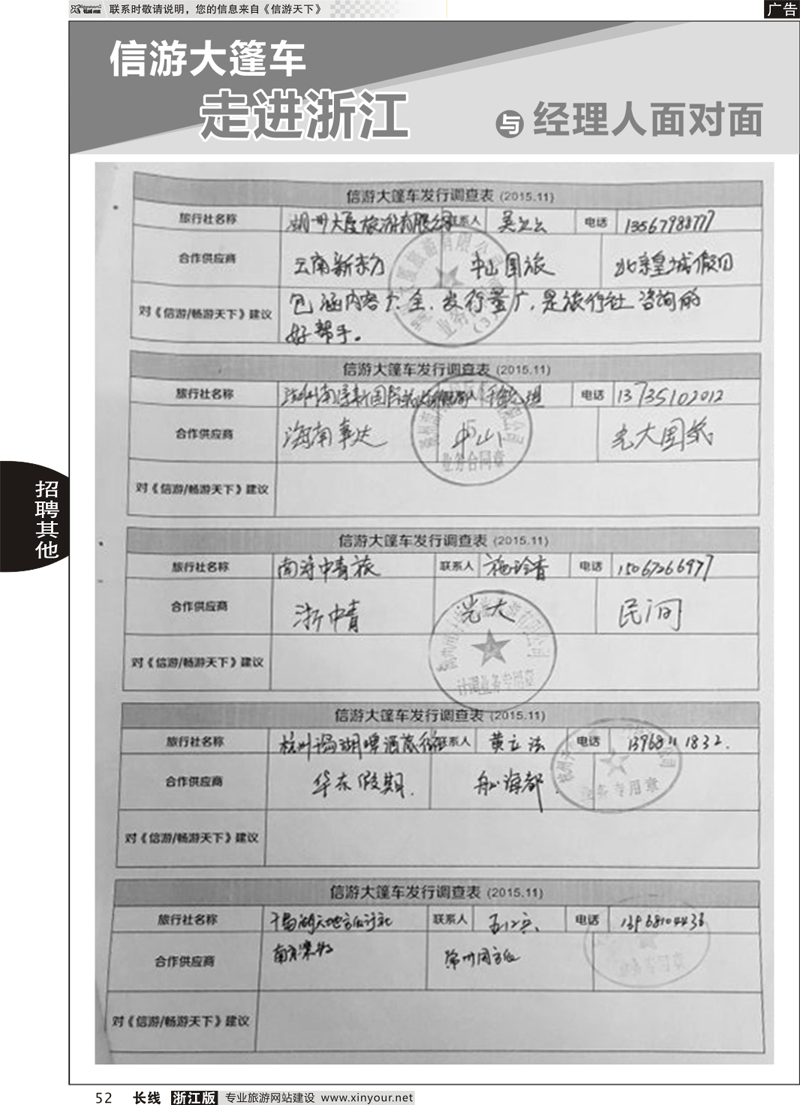 联系时敬请说明，您的信息来自《信游天下》
广告
信游大篷车
走进浙江
与 经理人面对面
信游大篷车发行调查表 (2015.11)
旅行社名称 湖州大厦旅游有限公司 联系人 电话 13567988777
合作供应商 云南新势力 中山国旅 北京皇城假日
对《信游/畅游天下》建议 包涵内容个全，发行量广，是旅行社咨询的
好帮手。
信游大篷车发行调查表 (2015.11)
旅行社名称 电话 13735102012
合作供应商 海南事达 中山 光大国旅
业务合同章
对《信游/畅游天下》建议
信游大篷车发行调查表 (2015.11)
旅行社名称 南浔中青旅 联系人 施玲香 电话 15067266977
合作供应商 浙中青 光大 民间
计调业务专用章
对《信游/畅游天下》建议
信游大篷车发行调查表 (2015.11)
旅行社名称 联系人 黄立法 电话 13968111832.
合作供应商 华东假期. 航海都
业务专用章
对《信游/畅游天下》建议
信游大篷车发行调查表 (2015.11)
旅行社名称 联系人 电话 13968104436
合作供应商
对《信游/畅游天下》建议
招聘其他
52 长线 浙江版 专业旅游网站建设 www.xinyour.net